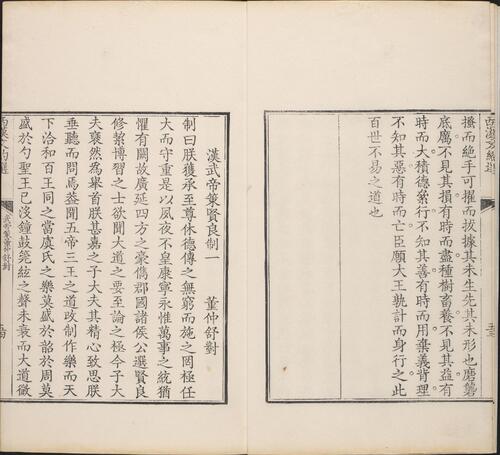 搔而絕手可擢而拔據其未生先其未形也磨礱
底厲不見其損有時而盡種樹畜養不見其益有
時而大積德絫行不知其善有時而用棄義背理
不知其惡有時而亡臣願大王孰計而身行之此
百世不易之道也
漢武帝策賢良制一 董仲舒對
制曰朕獲承至尊休德傳之無窮而施之罔極任
大而守重是以夙夜不皇康寧永惟萬事之統猶
懼有闕故廣延四方之豪儁郡國諸侯公選賢良
修絜博習之士欲聞大道之要至論之極今子大
夫裒然為舉首朕甚嘉之子大夫其精心致思朕
垂聽而問焉蓋聞五帝三王之道改制作樂而天
下洽和百王同之當虞氏之樂莫盛於韶於周莫
盛於勺聖王已沒鐘鼓筦絃之聲未衰而大道微
武帝策董仲舒對